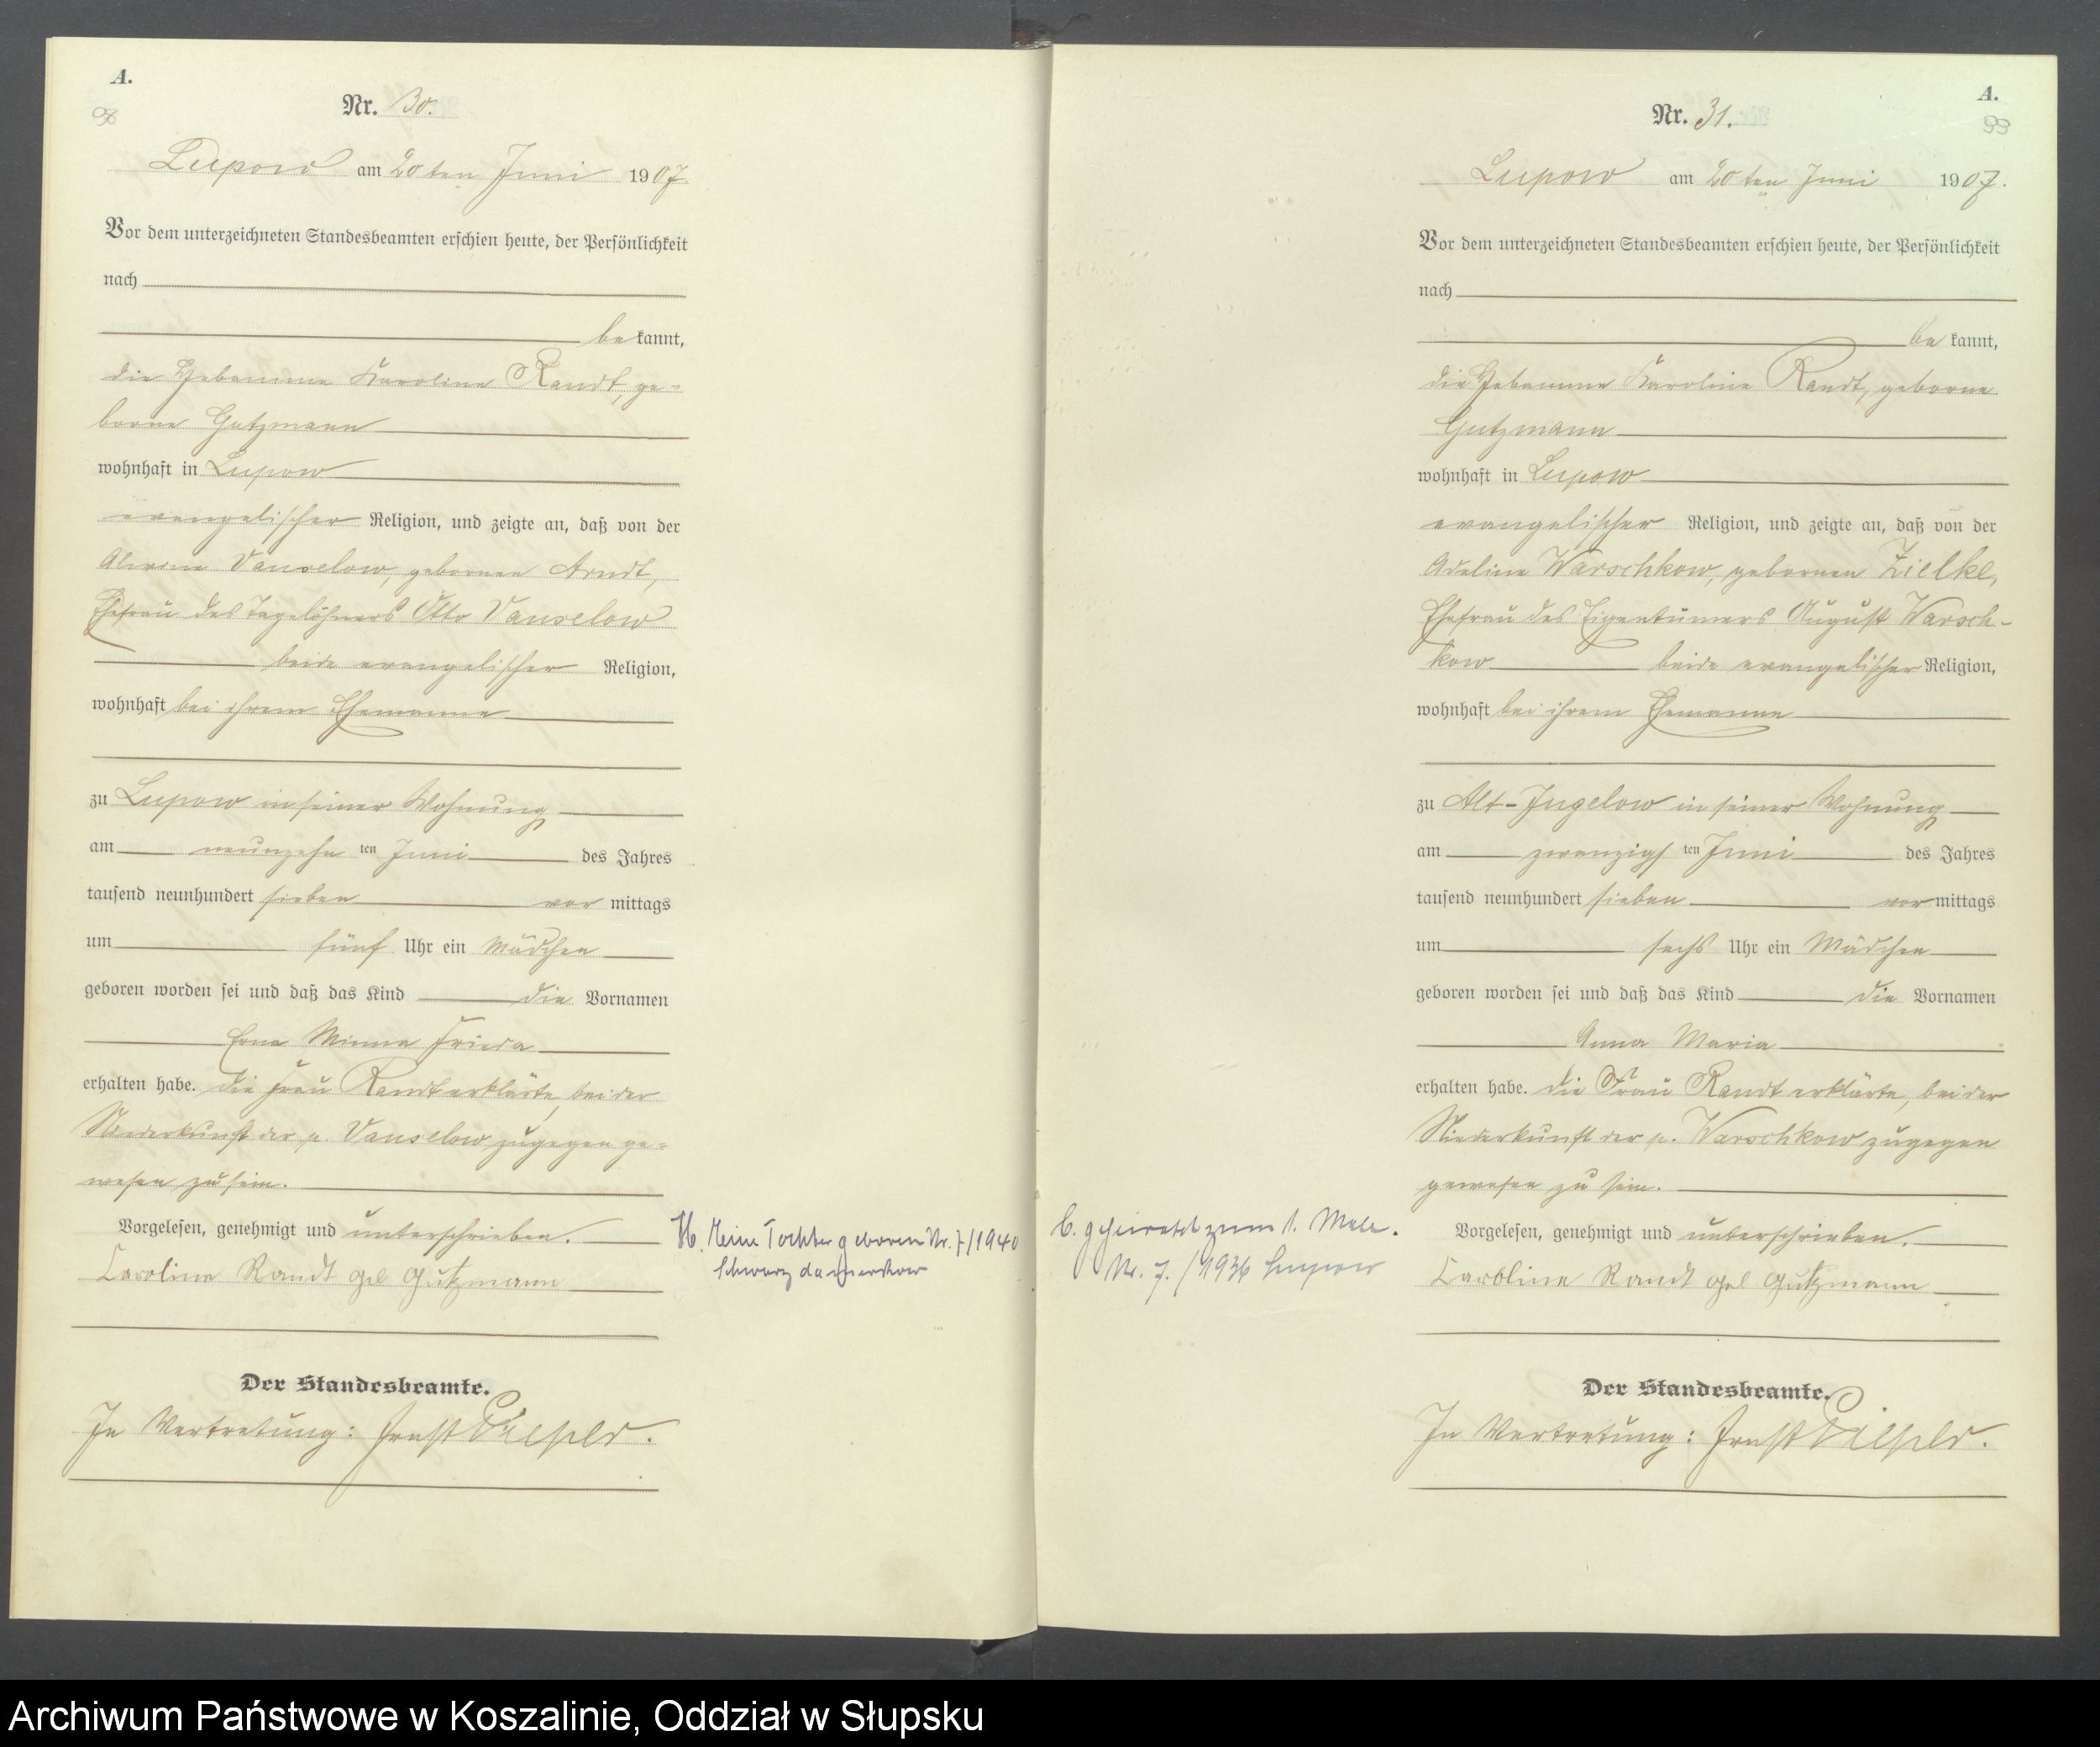 A.
Nr. 30.
Lupow am 20ten Juni 1907
Vor dem unterzeichneten Standesbeamten erschien heute, der Persönlichkeit
nach
be kannt,
die Hebamme Karoline Randt, ge=
borne Gutzmann
wohnhaft in Lupow
evangelischer Religion, und zeigte an, daß von der
Alwine Vanselow, gebornen Arndt,
Ehefrau des Tagelöhners Otto Vanselow
beide evangelischer Religion,
wohnhaft bei ihrem Ehemanne
zu Lupow in seiner Wohnung
am neunzehn ten Juni des Jahres
tausend neunhundert sieben vor mittags
um fünf Uhr ein Mädchen
geboren worden sei und daß das Kind die Vornamen
Erna Minna Frieda
erhalten habe. Die Frau Randt erklärte, bei der
Niederkunft der p. Vanselow zugegen ge=
wesen zu sein.
Vorgelesen, genehmigt und unterschrieben.
Caroline Randt geb Gutzmann
Der Standesbeamte.
In Vertretung: Ernst
Tochter geboren Nr. 7/1940
A.
99
Nr. 31.
Lupow am 20ten Juni 1907.
Vor dem unterzeichneten Standesbeamten erschien heute, der Persönlichkeit
nach
be kannt,
die Hebamme Karoline Randt, geborne
Gutzmann
wohnhaft in Lupow
evangelischer Religion, und zeigte an, daß von der
Adeline Warschkow, gebornen Zielke,
Ehefrau des Eigentümers August Warsch-
kow beide evangelischer Religion,
wohnhaft bei ihrem Ehemanne
zu Alt-Jugelow in seiner Wohnung
am zwanzigs ten Juni des Jahres
tausend neunhundert sieben vor mittags
um sechs Uhr ein Mädchen
geboren worden sei und daß das Kind die Vornamen
Anna Maria
erhalten habe. Die Frau Randt erklärte, bei der
Niederkunft der p. Warschkow zugegen
gewesen zu sein.
Vorgelesen, genehmigt und unterschrieben.
Caroline Randt geb Gutzmann
Der Standesbeamte.
In Vertretung: Ernst
geheiratet zum 1. Male.
Nr. 7./1936 Lupow
Archiwum Państwowe w Koszalinie, Oddział w Słupsku